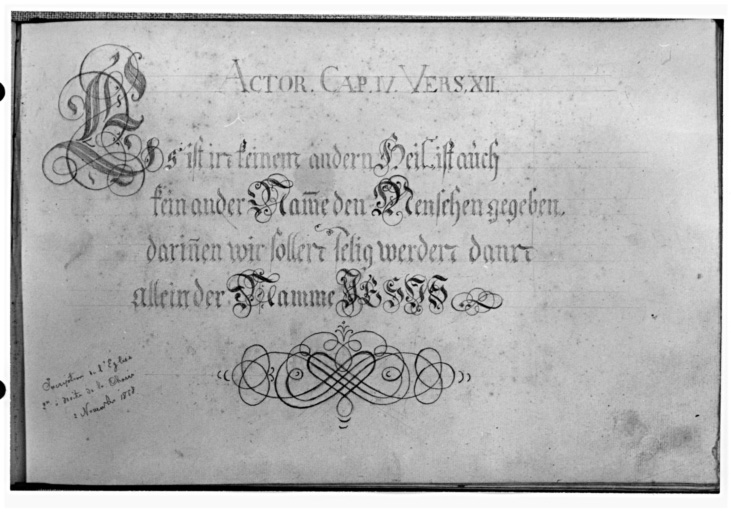 ACTOR. CAP. IV. VERS. XII.
Es ist in keinem andern Heil, ist auch
kein ander Nam̄e den Menschen gegeben.
darin̄en wir sollen selig werden dann
allein der Namme JESUS
Inscription de l'Eglise
2 Novembre